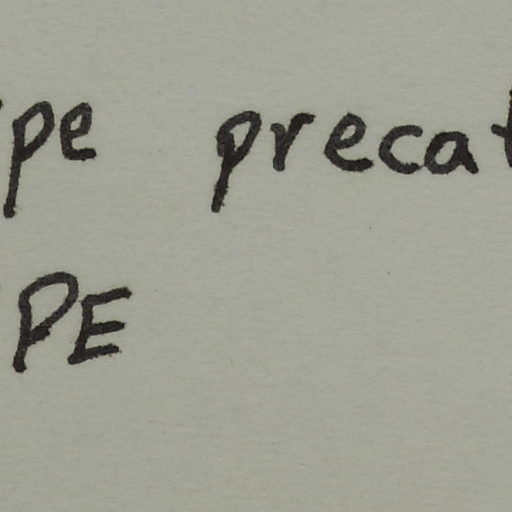 pe precat
PE